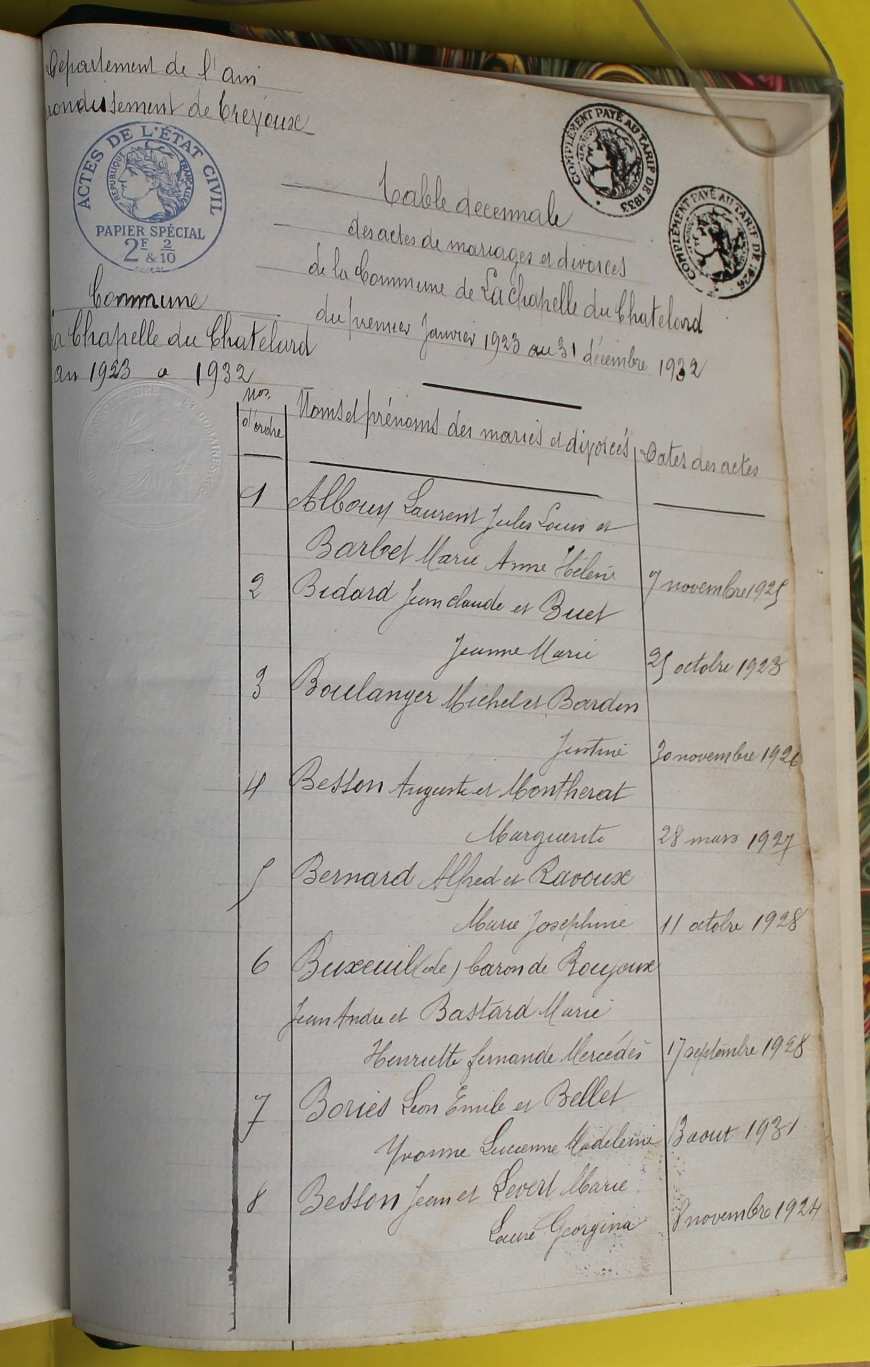 Département de l'ain
rondissement de Trévoux
ACTES DE L'ÉTAT CIVIL
RÉPUBLIQUE FRANÇAISE
PAPIER SPÉCIAL
2F & 2/10
COMPLÉMENT PAYÉ AU TARIF DE 1933
COMPLÉMENT PAYÉ AU TARIF DE 1926
Table decennale
des actes de mariages et divorces
de la Commune de La Chapelle du Chatelard
du premier Janvier 1923 au 31 décembre 1932
Commune
a Chapelle du Chatelard
an 1923 a 1932
Nos d'ordre
Noms et prénoms des mariés et divorcés
Dates des actes
1 Albouy Laurent Jules Louis et
Barbet Marie Anne Hélène 7 novembre 1925
2 Bidard Jean claude et Buet
Jeanne Marie 25 octobre 1923
3 Boulanger Michel et Bardin
Justine 30 novembre 1926
4 Besson Auguste et Montherat
Marguerite 28 mars 1927
5 Bernard Alfred et Ravoux
Marie Josephine 11 octobre 1928
6 Buxeuil (de) baron de Roujoux
Jean Andre et Bastard Marie
Henriette fernande Mercédès 17 septembre 1928
7 Bories Léon Emile et Bellet
Yvonne Lucienne Madeleine 3 aout 1931
8 Besson Jean et Levert Marie
Laure Georgina 8 novembre 1924